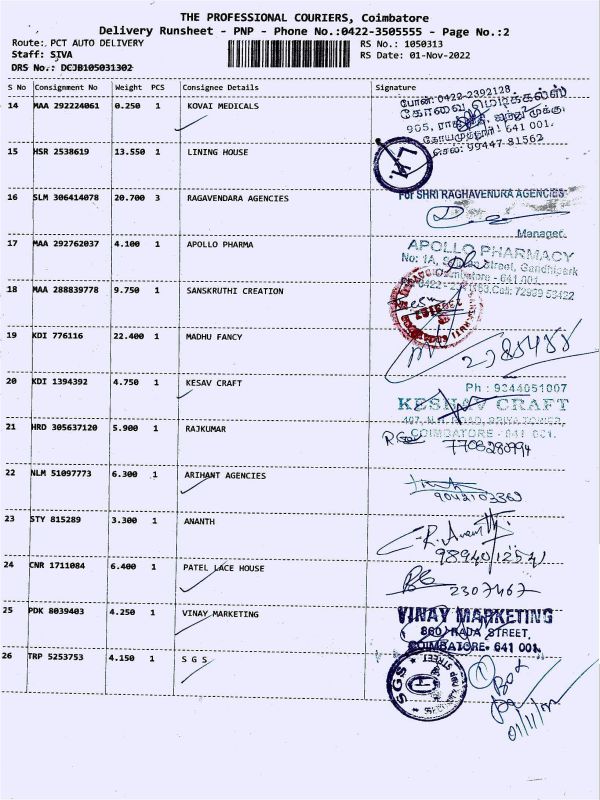 THE PROFESSIONAL COURIERS, Coimbatore
Delivery Runsheet - PNP - Phone No.:0422-3505555 - Page No.:2
Route: PCT AUTO DELIVERY RS No.: 1050313
Staff: SIVA RS Date: 01-Nov-2022
DRS No.: DCJB105031302
S No Consignment No Weight PCS Consignee Details Signature
14 MAA 292224061 0.250 1 KOVAI MEDICALS
போன்: 0422-2392128,
கோவை மெடிக்கல்ஸ்
905, முக்கு,
கோயமுத்தூர் 641 001.
செல்: 99447 81562
15 HSR 2538619 13.550 1 LINING HOUSE
L.H.
16 SLM 306414078 20.700 3 RAGAVENDARA AGENCIES
For SHRI RAGHAVENDRA AGENCIES
Manager
17 MAA 292762037 4.100 1 APOLLO PHARMA
APOLLO PHARMACY
No: 1A, Street, Gandhipark
Coimbatore - 641 001.
Cell: 72999 53422
18 MAA 288839778 9.750 1 SANSKRUTHI CREATION
19 KDI 776116 22.400 1 MADHU FANCY
2385488
20 KDI 1394392 4.750 1 KESAV CRAFT
Ph : 9344051007
KESHAV CRAFT
COIMBATORE - 641 001.
21 HRD 305637120 5.900 1 RAJKUMAR
7708280994
22 NLM 51097773 6.300 1 ARIHANT AGENCIES
9042103362
23 STY 815289 3.300 1 ANANTH
R. Ananth
9894012541
24 CNR 1711084 6.400 1 PATEL LACE HOUSE
2307467
25 PDK 8039403 4.250 1 VINAY MARKETING
VINAY MARKETING
860, STREET,
COIMBATORE- 641 001.
26 TRP 5253753 4.150 1 S G S
SGS
1 Box
01/11/22